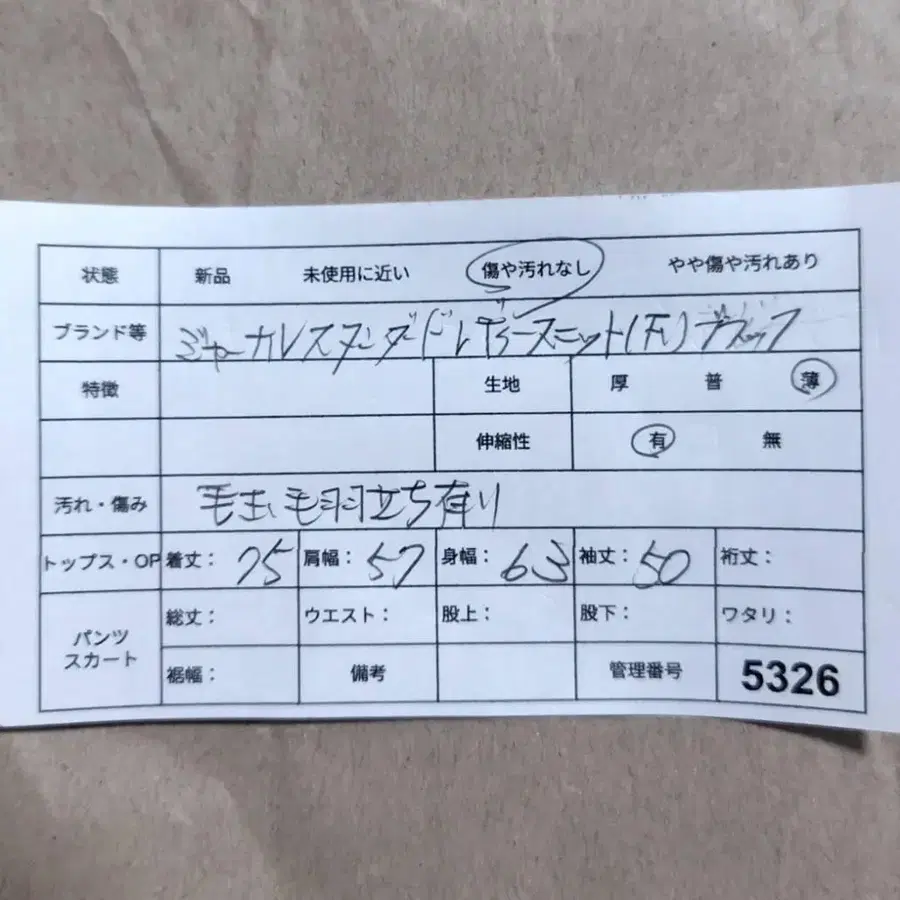 状態 新品 未使用に近い 傷や汚れなし やや傷や汚れあり
ブランド等 ジャーナルスタンダードレディースニット(F)ブラック
特徴 生地 厚 普 薄
伸縮性 有 無
汚れ・傷み 毛玉、毛羽立ち有り
トップス・OP 着丈: 75 肩幅: 57 身幅: 63 袖丈: 50 裄丈:
パンツ スカート 総丈: ウエスト: 股上: 股下: ワタリ:
裾幅: 備考 管理番号 5326